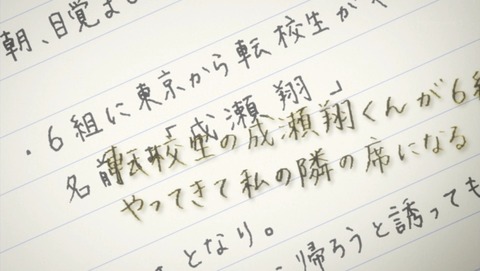 朝、目覚ま
・6組に東京から転校生が
名前は「成瀬 翔」
転校生の成瀬翔くんが6組
やってきて私の隣の席になる
となり。
帰ろうと誘っても